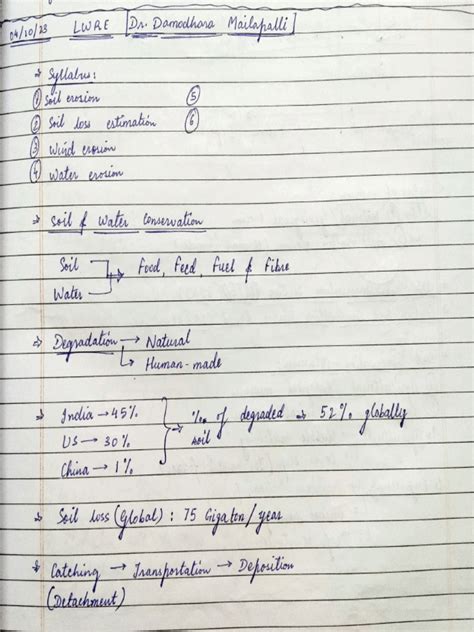 04/10/23 LWRE [Dr. Damodhara Mailapalli]
→ Syllabus:
① Soil erosion ⑤
② Soil loss estimation ⑥
③ Wind erosion
④ Water erosion
→ Soil & Water Conservation
Soil
Water → Food, Feed, Fuel & Fibre
→ Degradation → Natural
↳ Human-made
→ India → 45%
US → 30%
China → 1%
→ % of degraded soil → 52% globally
→ Soil loss (Global) : 75 Gigaton/year
→ Catching → Transportation → Deposition
(Detachment)